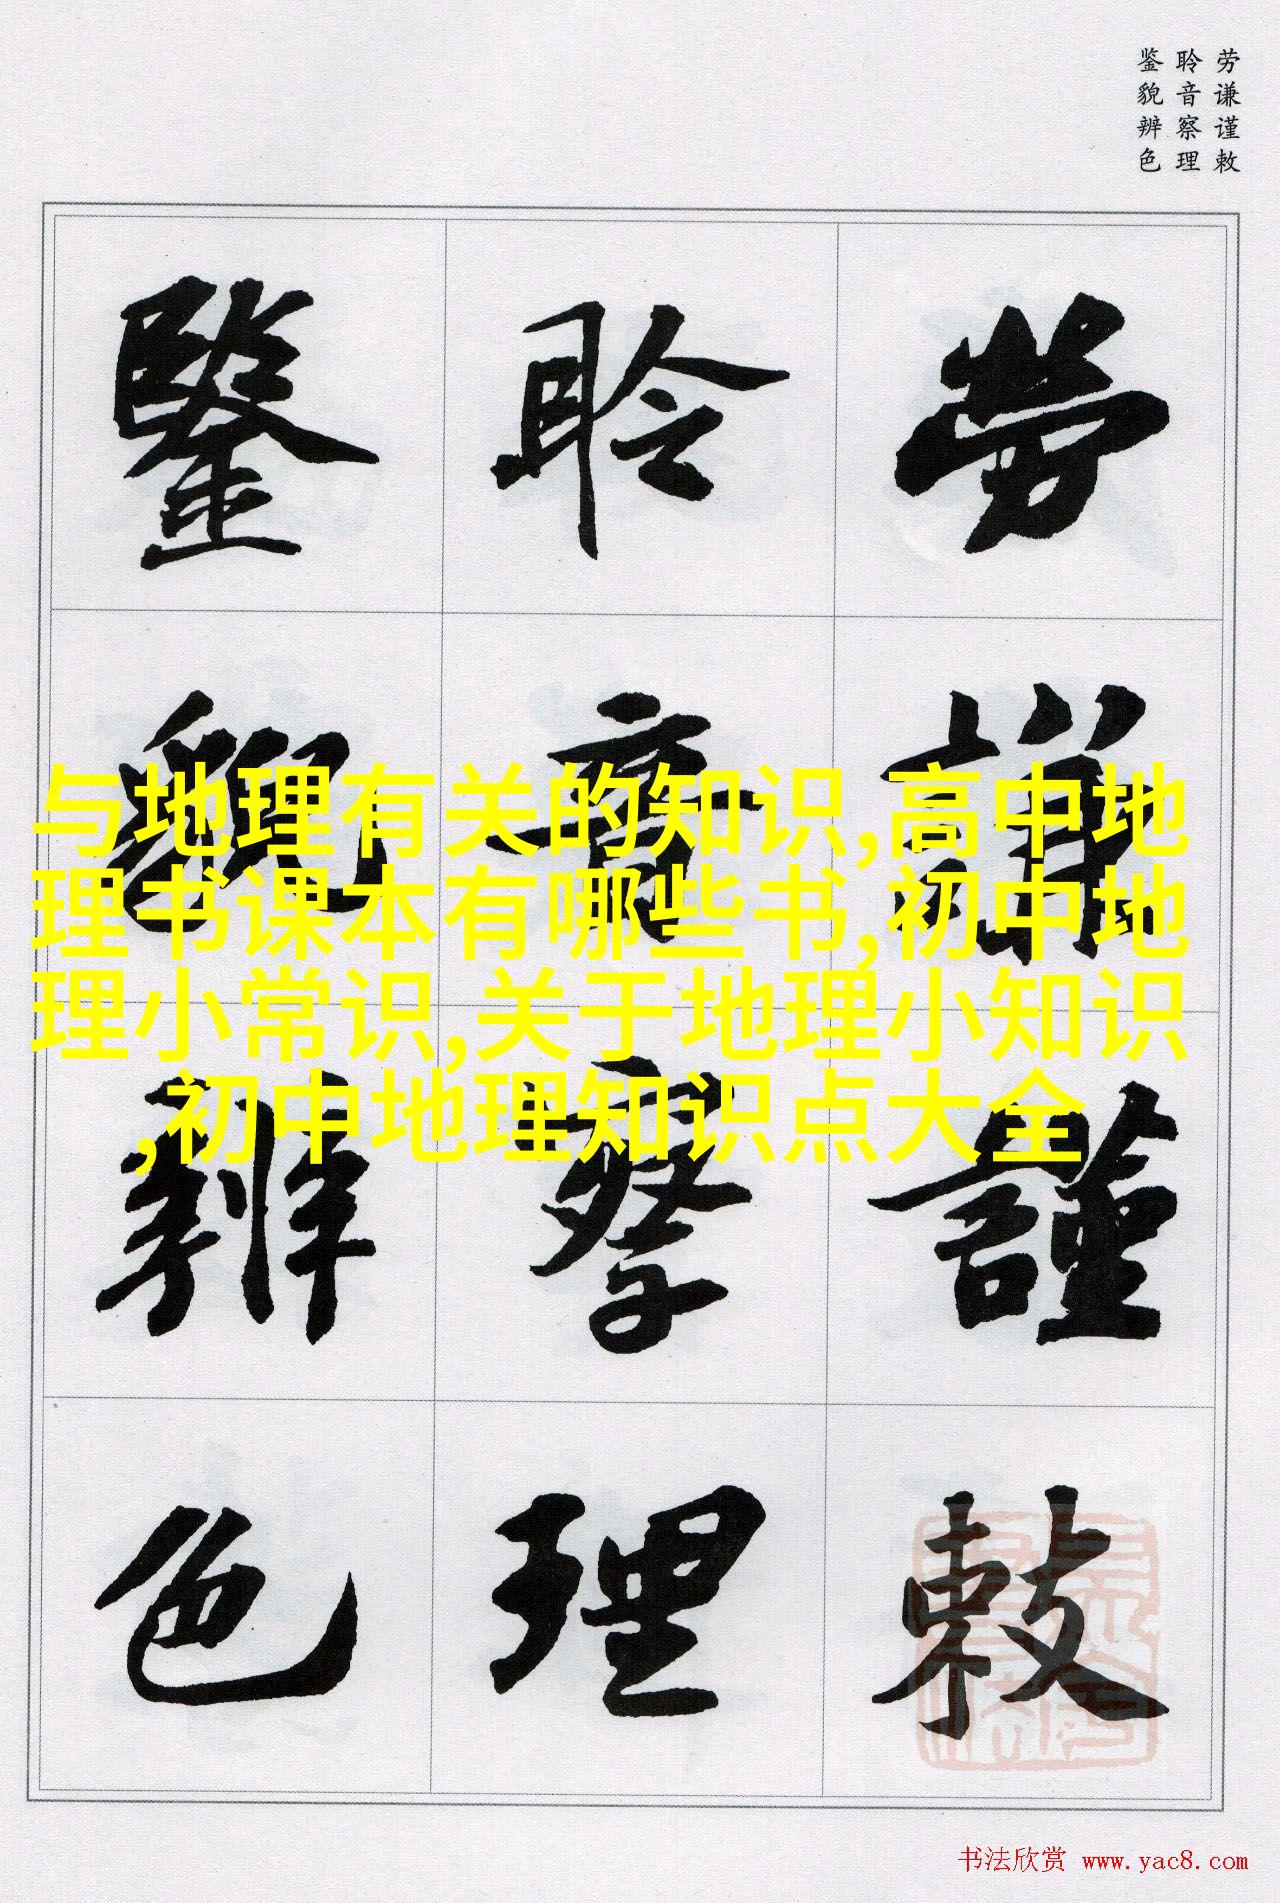 劳谦谨敕
聆音察理
鉴貌辨色
勞謙謹敕
聆音察理
鑒貌辨色
与地理有关的知识,高中地
理书课本有哪些书,初中地
理小常识,关于地理小知识
,初中地理知识点大全
书法欣赏 www.yac8.com